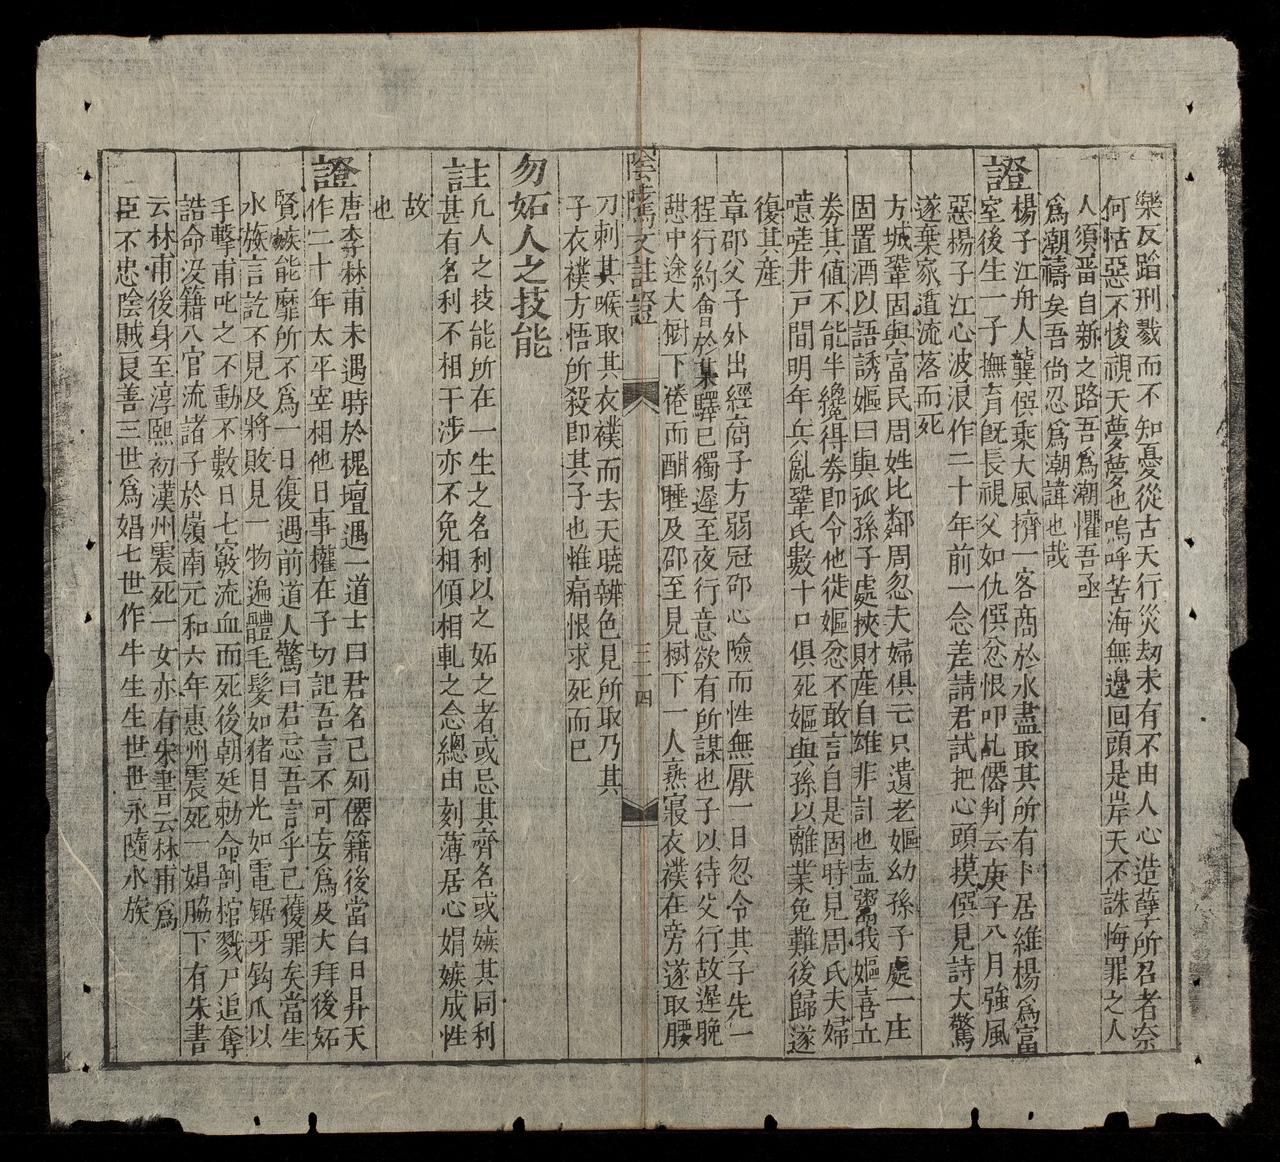 欒反蹈刑戮而不知憂從古天行災刼未有不由人心造薛所召者奈
何怙惡不悛視天夢夢也嗚呼苦海無邊回頭是岸天不誅悔罪之人
人須畱自新之路吾爲潮懼吾亟
爲潮禱矣吾尚忍爲潮諱也哉
證楊子江舟人龔僎乘大風擠一客商於水盡取其所有卜居維楊爲富
室後生一子撫育旣長視父如仇僎忿恨叩乩僊判云庚子八月強風
惡楊子江心波浪作二十年前一念差請君試把心頭摸僎見詩大驚
遂棄家遁流落而死
方城鞏固與富民周姓比鄰周忽夫婦俱亡只遺老嫗幼孫子處一庄
固置酒以語誘嫗曰與孤孫子處挾財産自雄非計也盍鬻我嫗喜立
券其值不能半纔得券即令他徙嫗忿不敢言自是固時見周氏夫婦
噫嘵井戸間明年兵亂鞏氏數十口俱死嫗與孫以離業免難後歸遂
復其産
章邵父子外出經商子方弱冠邵心險而性無厭一日忽令其子先一
程行約會於某驛已獨遲至夜行意欲有所謀也子以待父行故遲晚
憇中途大樹下倦而酣睡及邵至見樹下一人熟寢衣襆在旁遂取腰
陰隲文註證
三十四
刀刺其喉取其衣襆而去天曉辨色見所取乃其
子衣襆方悟所殺即其子也惟痛恨求死而已
勿妬人之技能
註凡人之技能所在一生之名利以之妬之者或忌其齊名或嫉其同利
甚有名利不相干涉亦不免相傾相軋之念總由刻薄居心媢嫉成性
故
也
證唐李林甫未遇時於槐壇遇一道士曰君名已列僊籍後當白日昇天
作二十年太平宰相他日事權在子切記吾言不可妄爲及大拜後妬
賢嫉能靡所不爲一日復遇前道人驚曰君忘吾言乎已獲罪矣當生
水族言訖不見及將敗見一物遍體毛髮如猪目光如電鋸牙鈎爪以
手擊甫叱之不動不數日七竅流血而死後朝廷勅命剖棺戮尸追奪
誥命沒籍入官流諸子於嶺南元和六年惠州震死一娼脇下有朱書
云林甫後身至淳熙初漢州震死一女亦有朱書云林甫爲
臣不忠陰賊良善三世爲娼七世作牛生生世世永隨水族